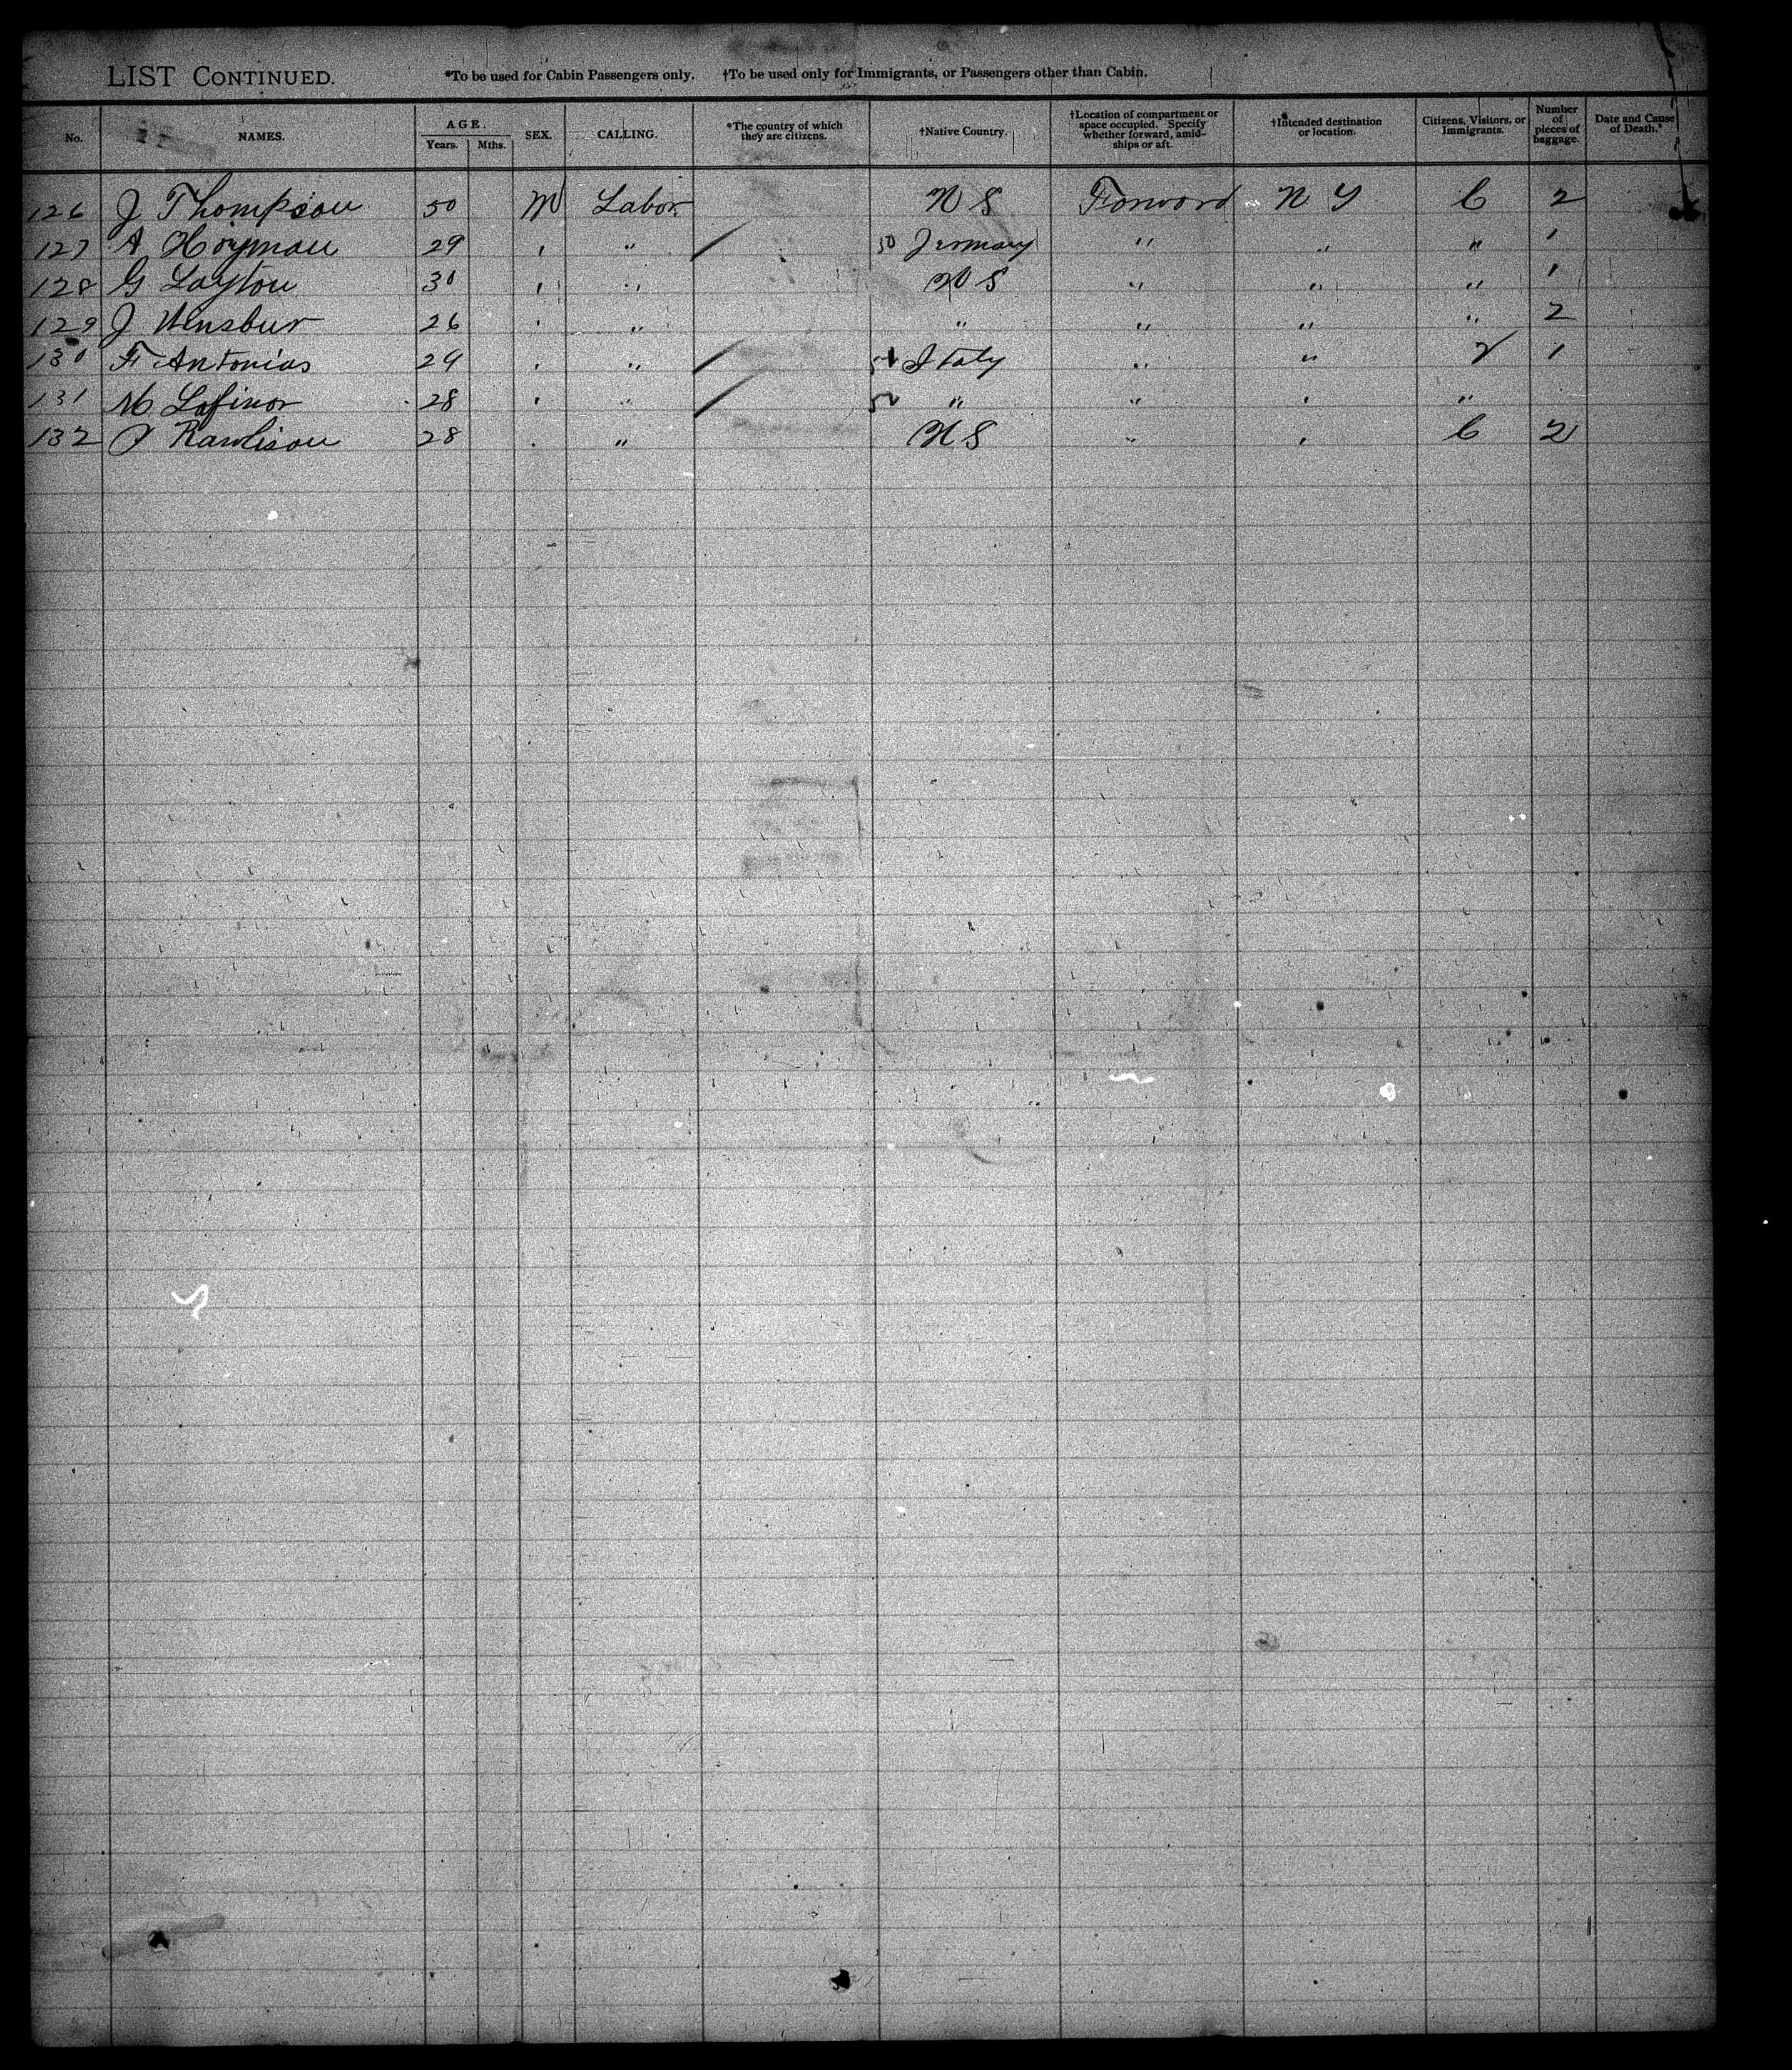 LIST CONTINUED. *To be used for Cabin Passengers only. †To be used only for Immigrants, or Passengers other than Cabin.
No. NAMES. AGE. Years. Mths. SEX. CALLING. *The country of which they are citizens. †Native Country. †Location of compartment or space occupied. Specify whether forward, amidships or aft. †Intended destination or location. Citizens, Visitors, or Immigrants. Number of pieces of baggage. Date and Cause of Death.*
126 J Thompson 50 M Labor U S Forword N Y C 2
127 A 29 " " 50 Germany " " " 1
128 G Layton 30 " " U S " " " 1
129 J 26 " " " " " " 2
130 F Antonias 29 " " 51 Italy " " 1
131 M 28 " " 52 " " " "
132 Rawlison 28 " " U S " " C 2